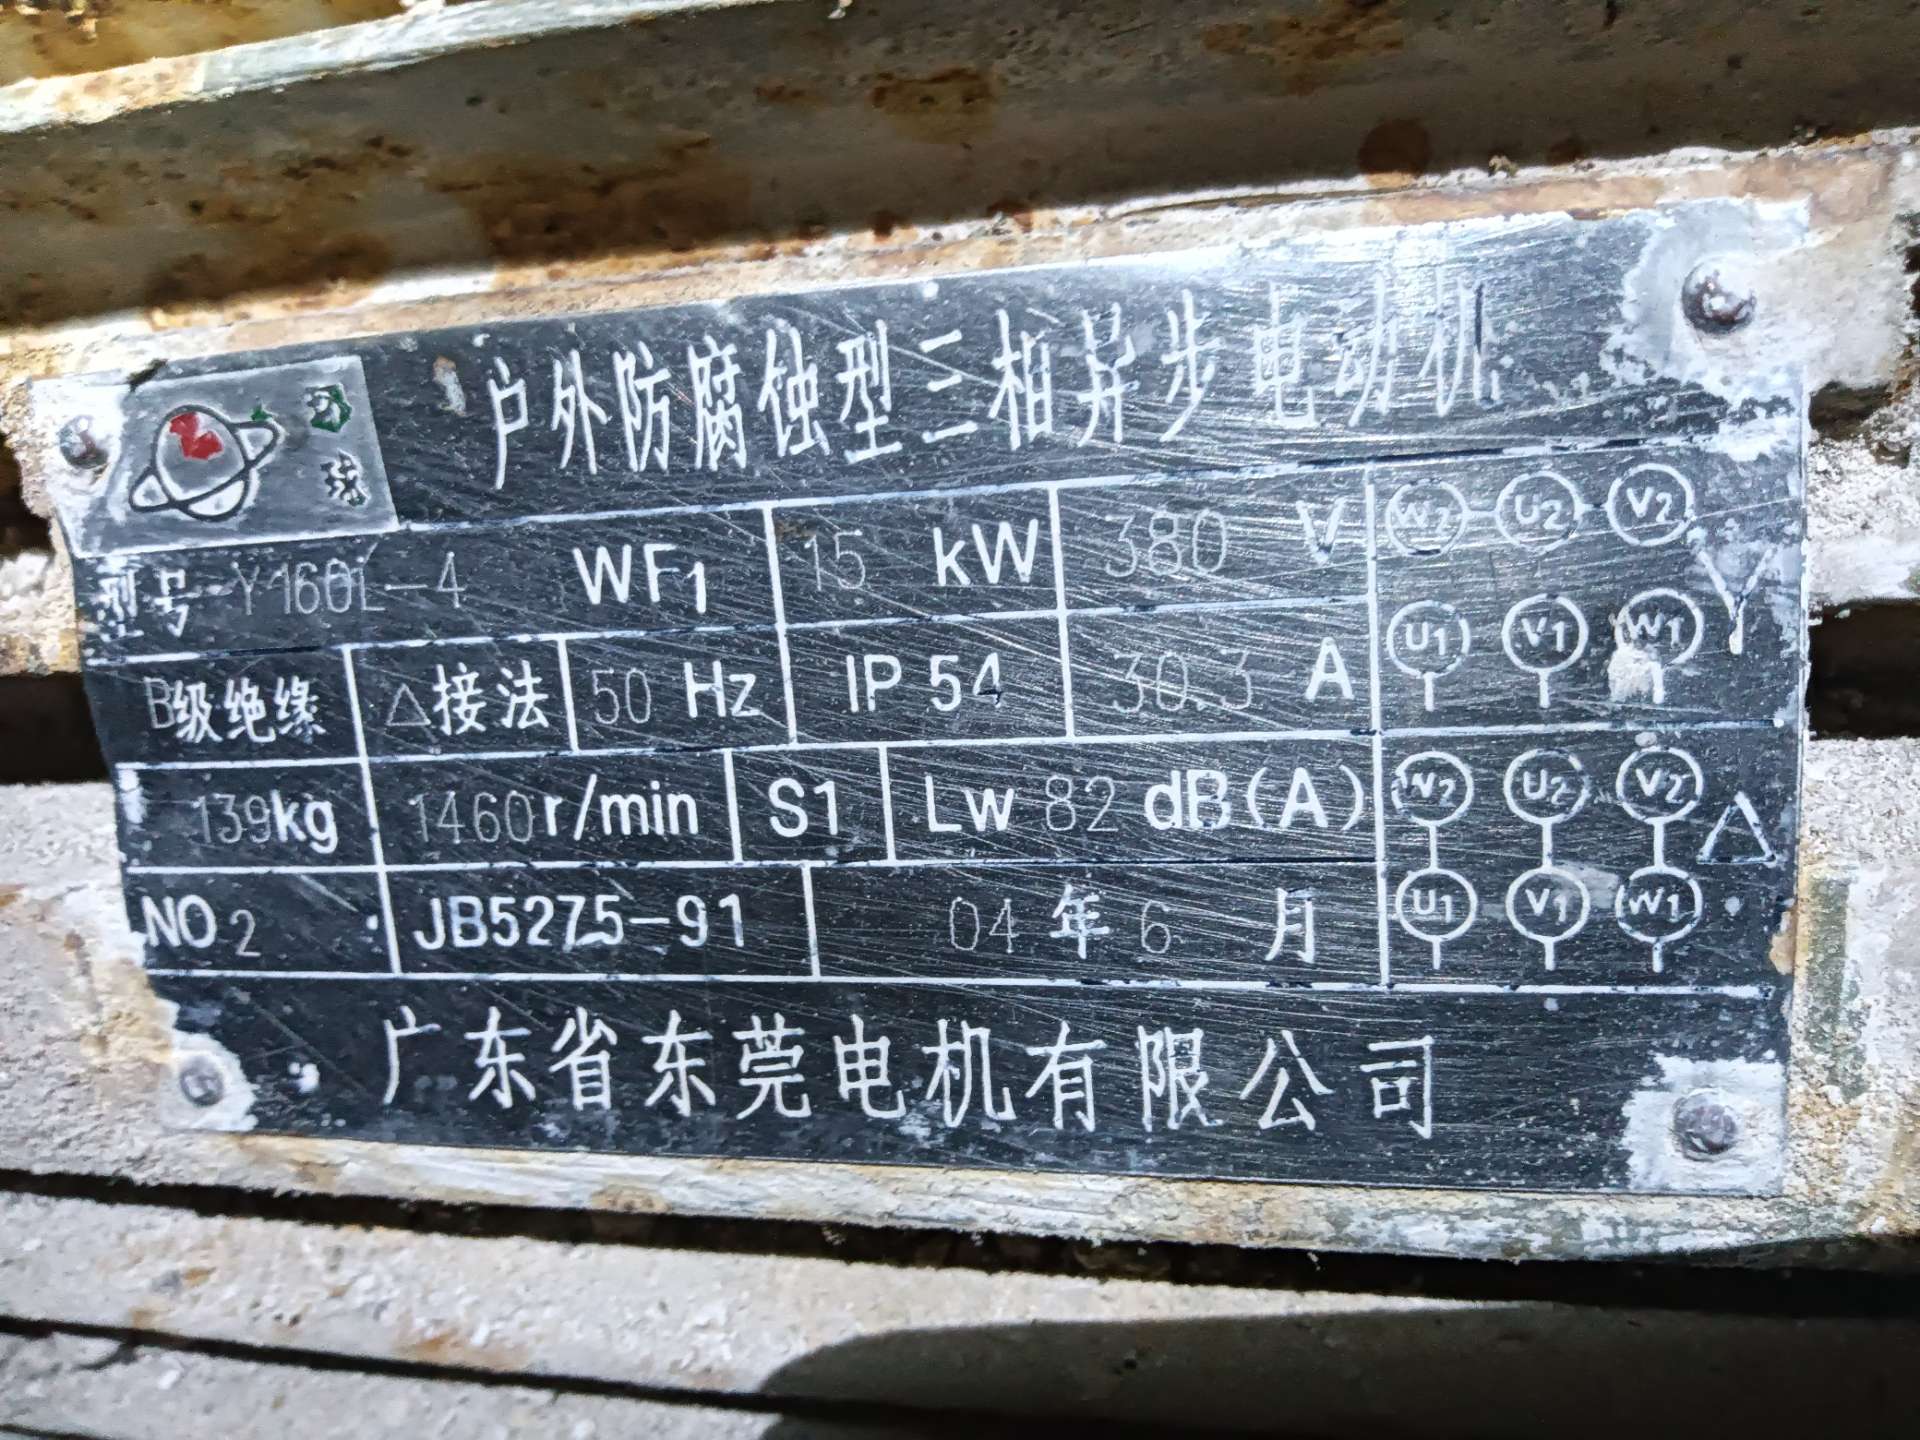 球
户外防腐蚀型三相异步电动机
型号 Y160L-4 WF1 15 kW 380 V
B级绝缘 △接法 50 Hz IP 54 30.3 A
139kg 1460r/min S1 Lw 82 dB(A)
NO 2 JB5275-91 04 年 6 月
W2 U2 V2
U1 V1 W1
Y
W2 U2 V2
U1 V1 W1
△
广东省东莞电机有限公司